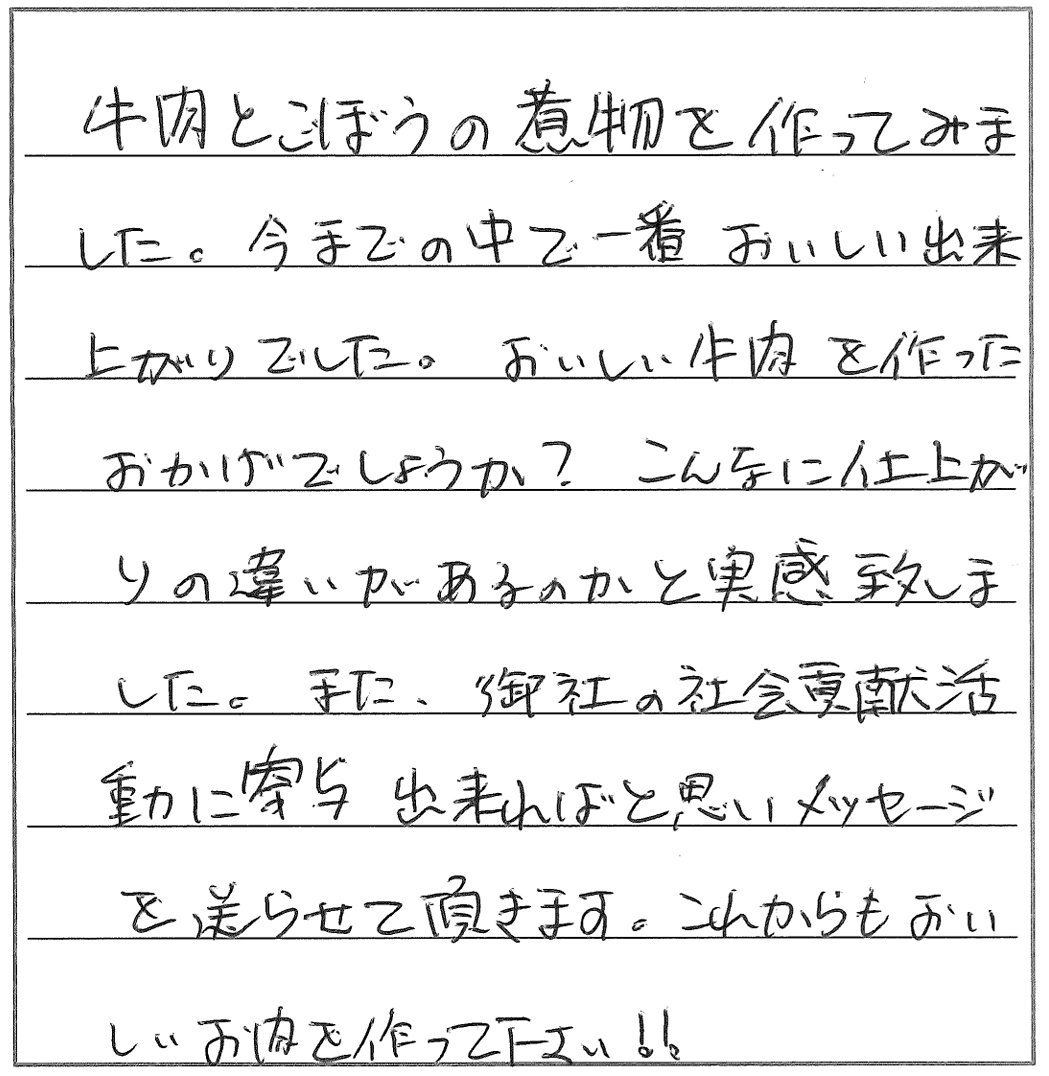 牛肉とごぼうの煮物を作ってみま
した。今までの中で一番おいしい出来
上がりでした。おいしい牛肉を作った
おかげでしょうか？こんなに仕上が
りの違いがあるのかと実感致しま
した。また、御社の社会貢献活
動に寄与出来ればと思いメッセージ
を送らせて頂きます。これからもおい
しいお肉を作って下さい!!